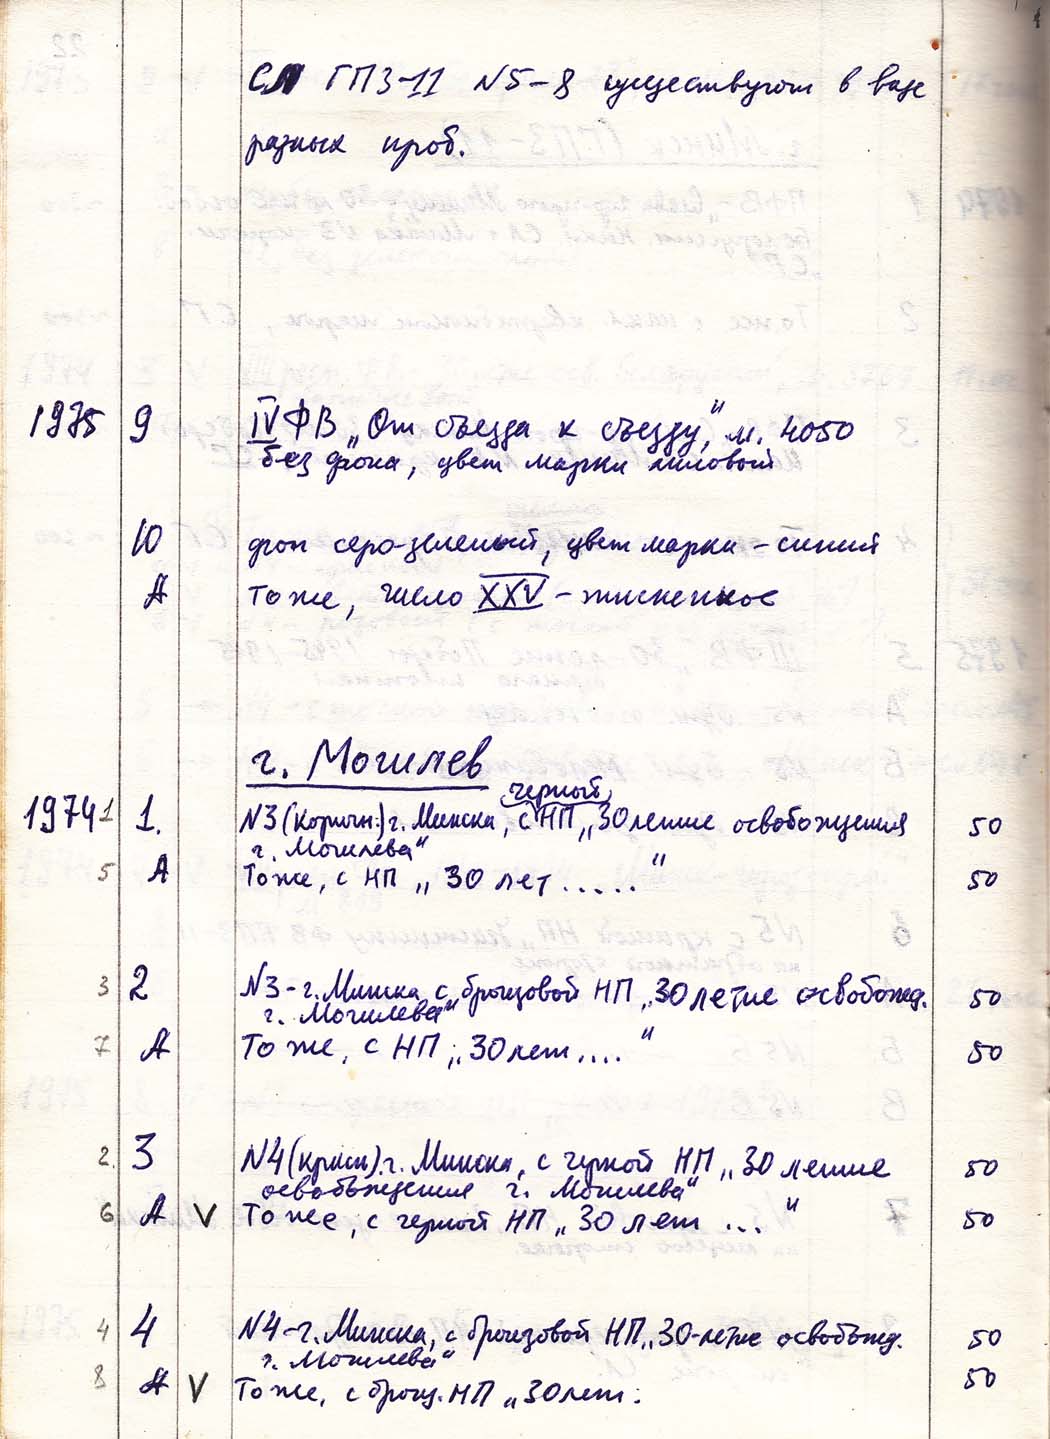 СЛ ГПЗ-11 N5-8 существуют в виде
разных проб.
1975 9 IV ФВ „От съезда к съезду", м. 4050
без фона, цвет марки лиловый
10 фон серо-зеленый, цвет марки - синий
А То же, число XXV - тисненное
г. Могилев
черный
1974 1 1. N3 (коричн.) г. Минска, с НП „30 летие освобождения 50
г. Могилева"
5 А То же, с НП „30 лет ....." 50
3 2 N3 - г. Минска с бронзовой НП „30 летие освобожд. 50
г. Могилева"
7 А То же, с НП „30 лет ...." 50
2. 3 N4 (красн) г. Минска, с черной НП „30 летие 50
освобождения г. Могилева"
6 А V То же, с черной НП „30 лет ..." 50
4 4 N4 - г. Минска, с бронзовой НП „30-летие освобожд. 50
г. Могилева"
8 А V То же, с бронз. НП „30 лет. 50